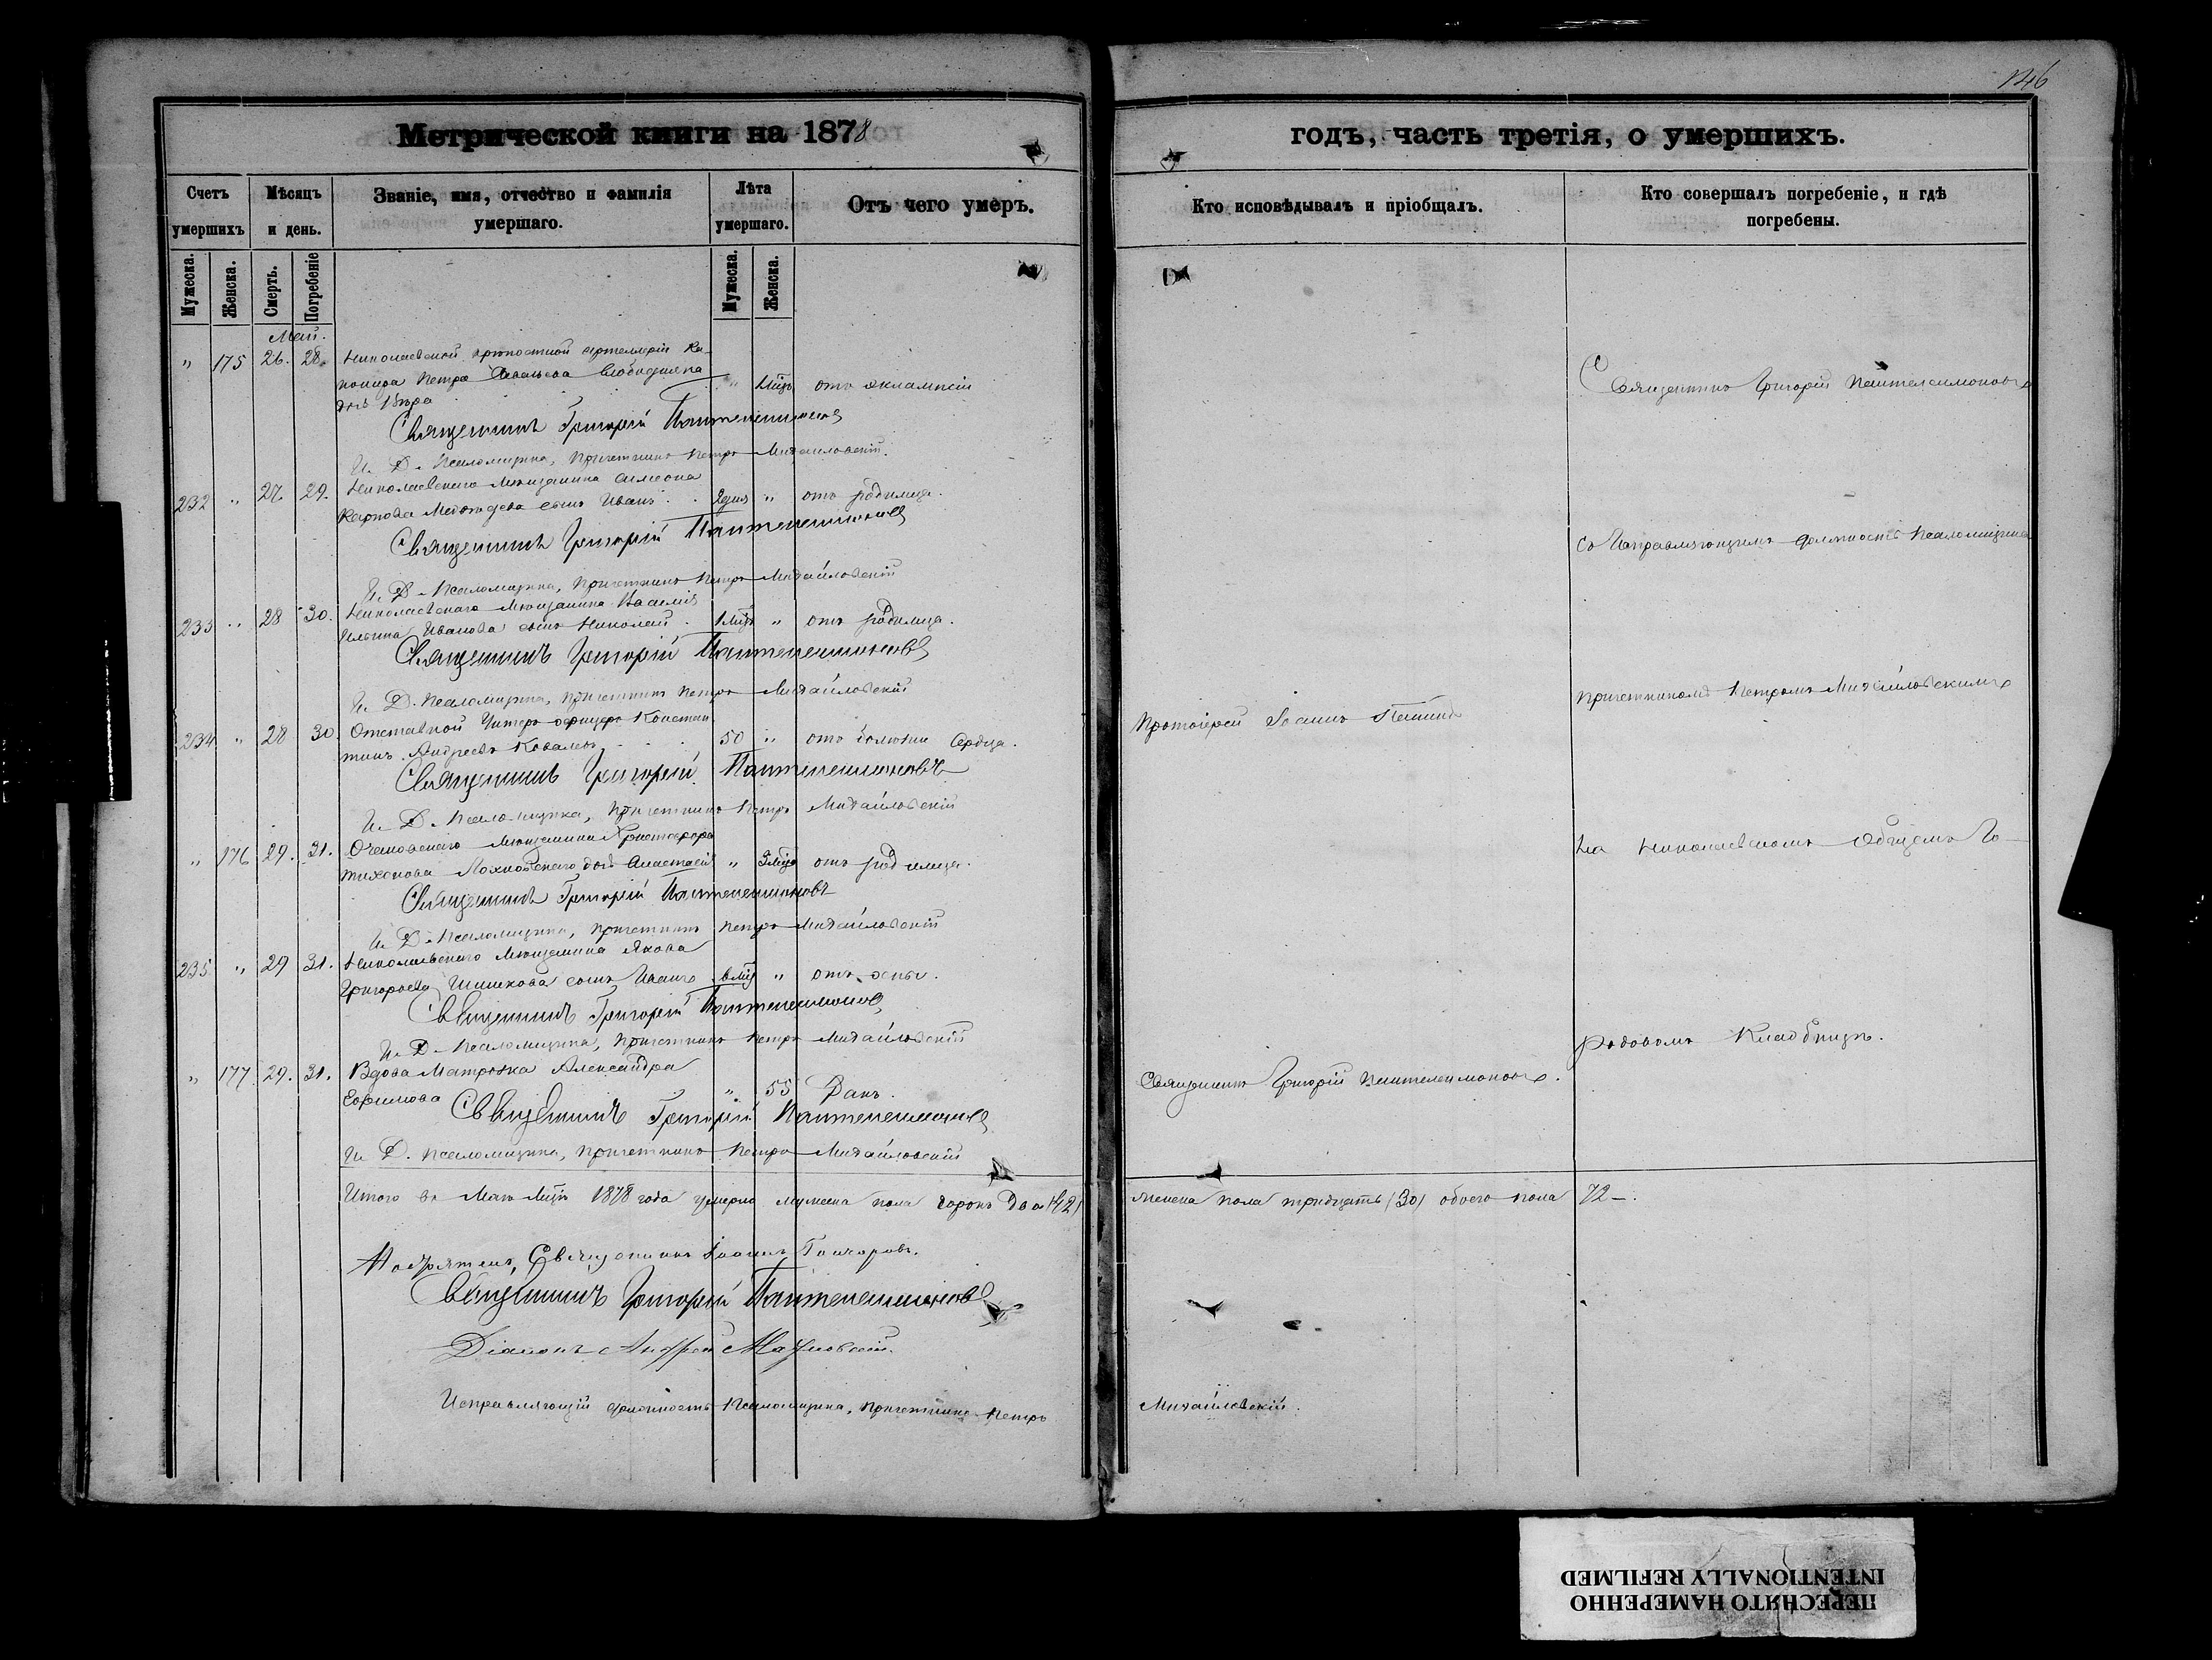 146
Метрической книги на 1878
годъ, часть третія, о умершихъ.
Счетъ умершихъ
Мѣсяцъ и день.
Званіе, имя, отчество и фамилія умершаго.
Лѣта умершаго.
Отъ чего умеръ.
Кто исповѣдывалъ и пріобщалъ.
Кто совершалъ погребеніе, и гдѣ погребены.
Мужеска.
Женска.
Смерть.
Погребеніе
Мужеска.
Женска.
Май.
" 175 26. 28. Николаевской крѣпостной артиллеріи Ка-
нонира Петра
дочь Вѣра " отъ эклампсіи
Священникъ Григорій Пантелеимоновъ
И. Д. Псаломщика, Причетникъ Петръ Михайловскій.
232 " 27. 29. Николаевскаго Мѣщанина Симеона
Карпова сынъ Иванъ. " отъ родимца.
Священникъ Григорій Пантелеимоновъ
И. Д. Псаломщика, Причетникъ Петръ Михайловскій
233 " 28 30. Николаевскаго Мѣщанина Василія
Ильина Иванова сынъ Николай. 1 мѣс " отъ родимца.
Священникъ Григорій Пантелеимоновъ
И. Д. Псаломщика, Причетникъ Петръ Михайловскій
234 " 28 30. Отставной Унтеръ офицеръ Констан
тинъ Андреевъ Ковалевъ 50 " отъ болѣзни Сердца.
Священникъ Григорій Пантелеимоновъ
И. Д. Псаломщика, Причетникъ Петръ Михайловскій
" 176 29. 31. Очаковскаго Мѣщанина Христофора
Тихонова дочь Анастасія " 3 мѣс отъ родимца.
Священникъ Григорій Пантелеимоновъ
И. Д. Псаломщика, Причетникъ Петръ Михайловскій
235 " 29 31. Николаевскаго Мѣщанина Якова
Григорьева Шишкова сынъ Иванъ " отъ оспы.
Священникъ Григорій Пантелеимоновъ
И. Д. Псаломщика, Причетникъ Петръ Михайловскій
" 177 29. 31. Вдова Матроska Александра
Ефимова " 55 Ракъ.
Священникъ Григорій Пантелеимоновъ
И. Д. Псаломщика, Причетникъ Петръ Михайловскій
Итого въ Маѣ Мѣсѣ 1878 года умерло мужеска пола сорокъ два (42)
Священникъ Іоаннъ Гончаровъ.
Священникъ Григорій Пантелеимоновъ
Діаконъ Андрей
Исправляющій должность Псаломщика, Причетникъ Петръ
Протоіерей Іоаннъ
Священникъ Григорій Пантелеимоновъ.
женска пола тридцать (30) обоего пола 72 —
Михайловскій.
Священникъ Григорій Пантелеимоновъ
Съ Исправляющимъ должность Псаломщика
Причетникомъ Петромъ Михайловскимъ
На Николаевскомъ Общемъ Го-
родовомъ Кладбищѣ.
ПЕРЕСНЯТО НАМЕРЕННО
INTENTIONALLY REFILMED